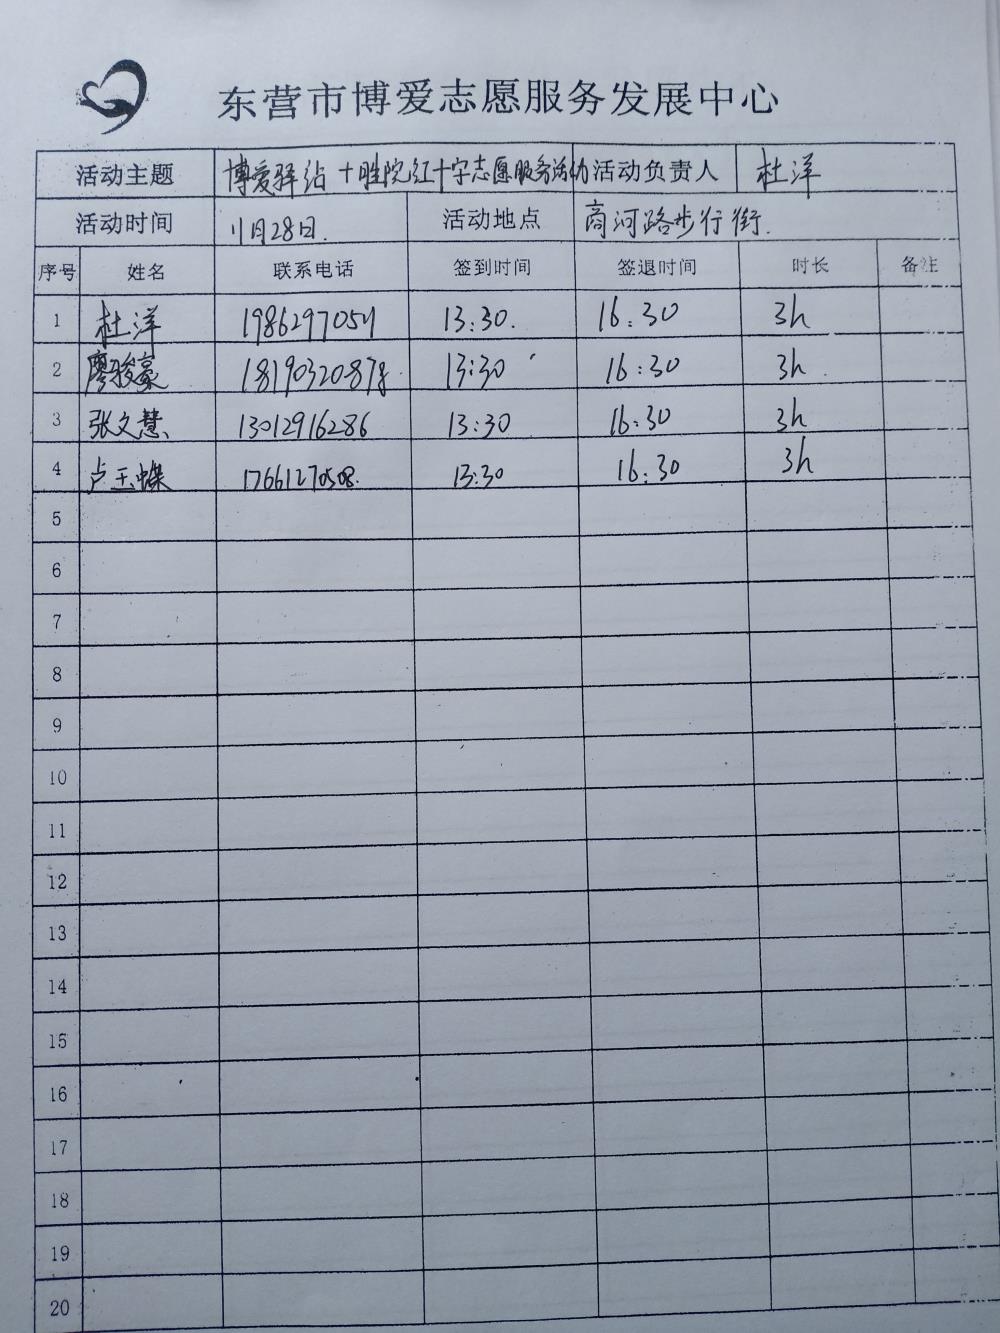 东营市博爱志愿服务发展中心
活动主题 博爱驿站+胜院红十字志愿服务活动 活动负责人 杜洋
活动时间 11月28日. 活动地点 商河路步行街.
序号 姓名 联系电话 签到时间 签退时间 时长 备注
1 杜洋 13:30. 16:30 3h
2 廖骏豪 13:30 16:30 3h.
3 张文慧 13012916286 13:30 16:30 3h
4 卢玉蝶 17661270508. 13:30 16:30 3h
5
6
7
8
9
10
11
12
13
14
15
16
17
18
19
20